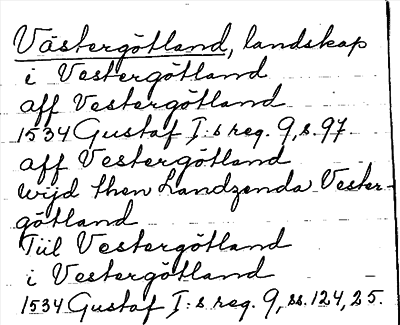 Västergötland, landskap
i Vestergötland
aff Vestergötland
1534 Gustaf I:s reg. 9, s. 97.
aff Vestergötland
wijd then Landzenda Vester-
götland
Tiil Vestergötland
i Vestergötland
1534 Gustaf I:s reg. 9, ss. 124, 25.